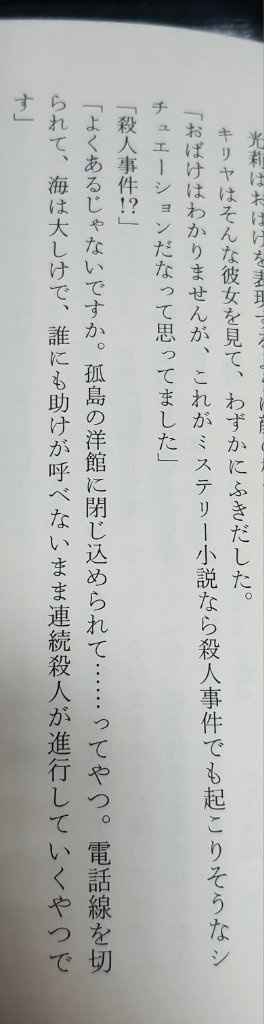 光莉はおばけを表現する
キリヤはそんな彼女を見て、わずかにふきだした。
「おばけはわかりませんが、これがミステリー小説なら殺人事件でも起こりそうなシ
チュエーションだなって思ってました」
「殺人事件!?」
「よくあるじゃないですか。孤島の洋館に閉じ込められて……ってやつ。電話線を切
られて、海は大しけで、誰にも助けが呼べないまま連続殺人が進行していくやつで
す」